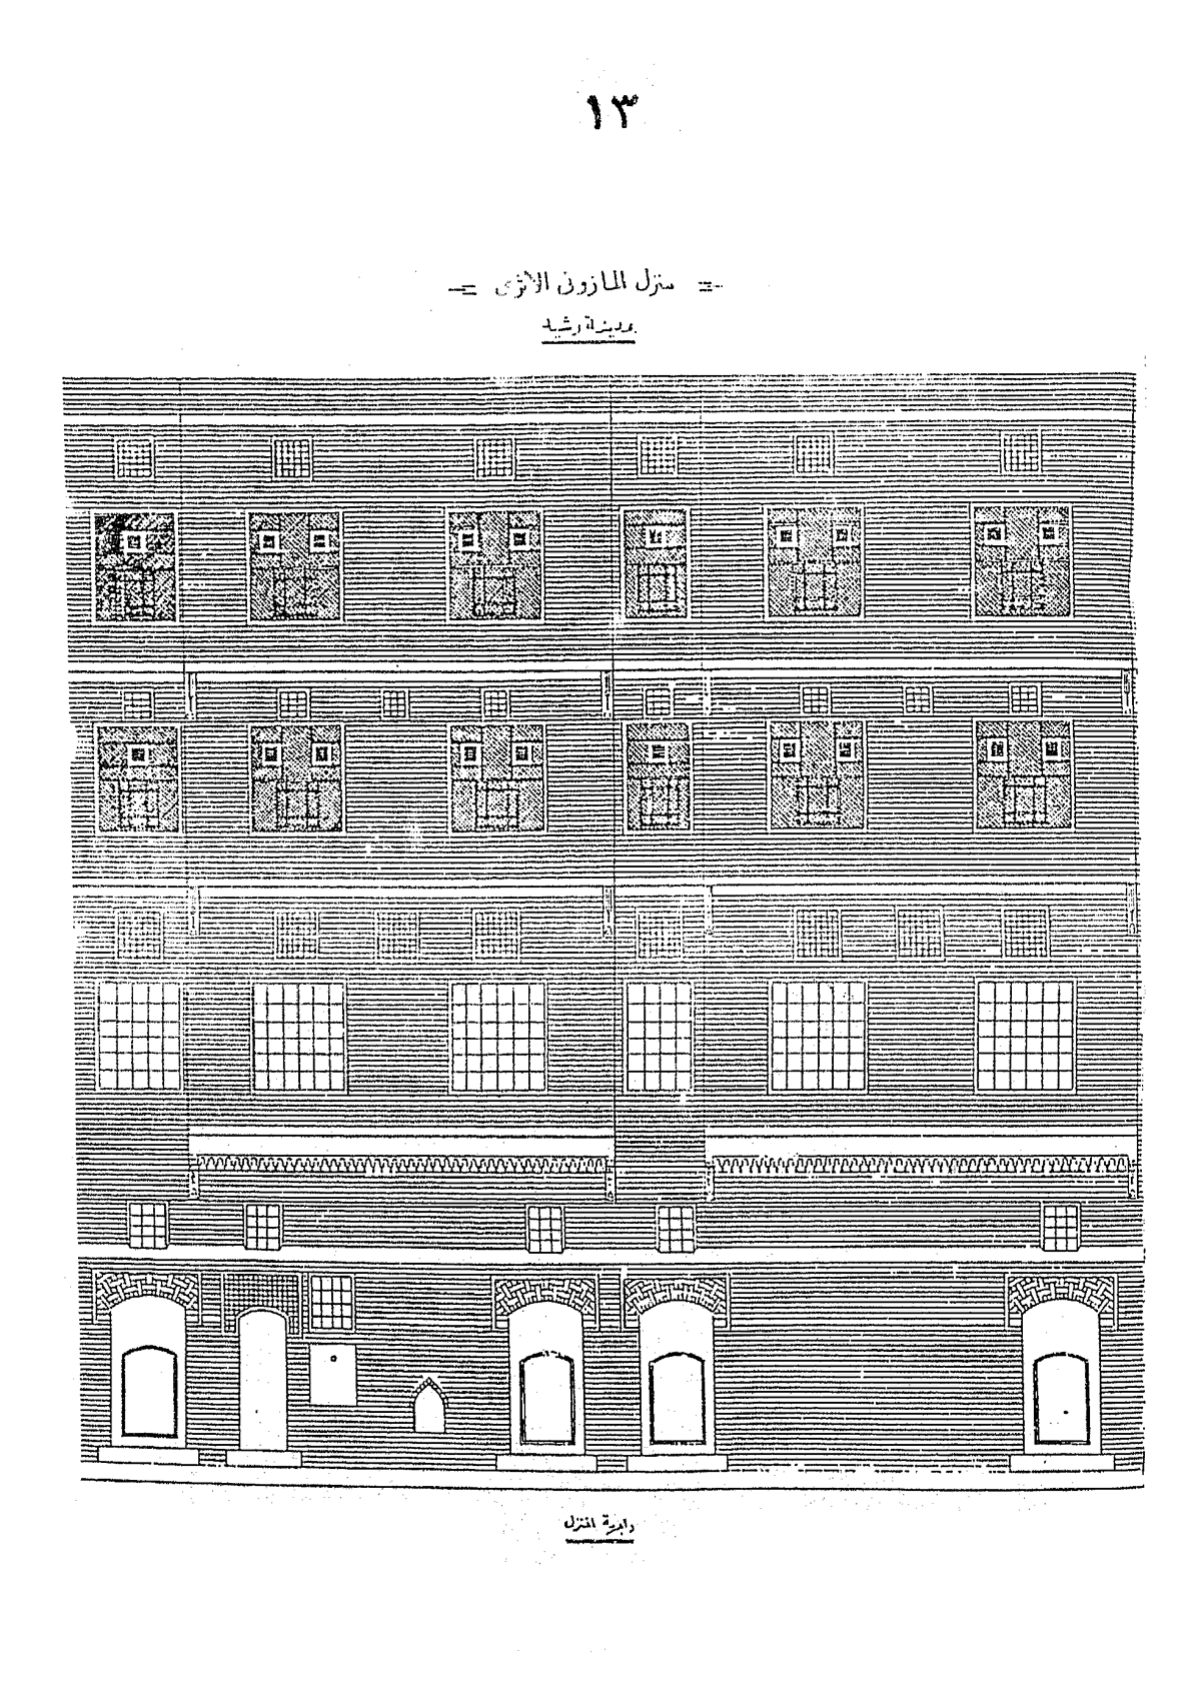 ١٣
منزل المازونى الأثرى
بمدينة رشيد
واجهة المنزل